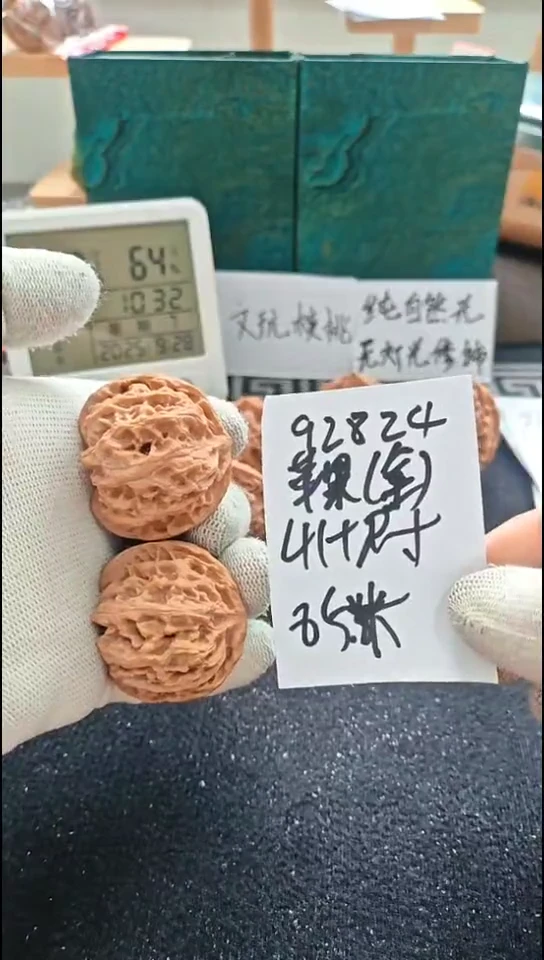 64%
10:32
星期 7
2025 9:28
文玩核桃
纯自然光
无灯光修饰
92824
苹果(金)
41+尺寸
85米